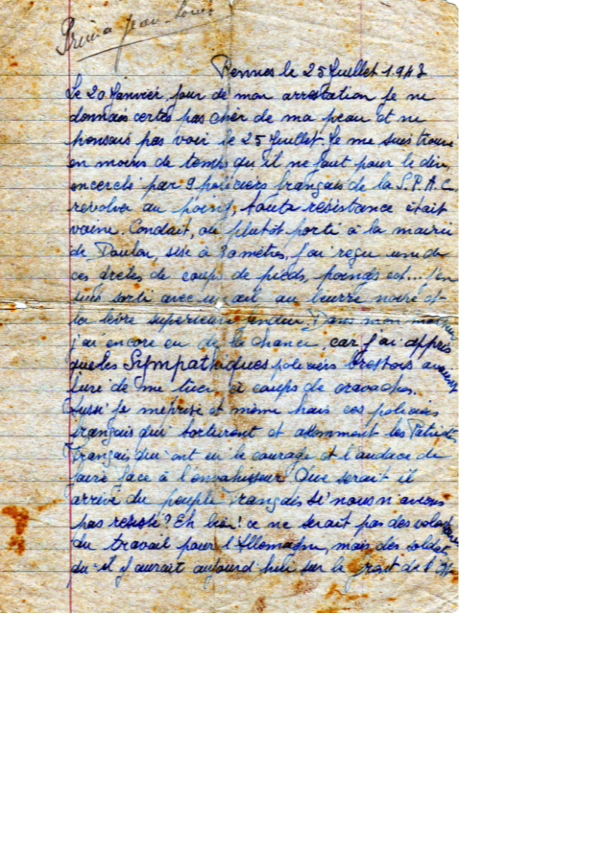 Jean-Louis
Rennes le 25 Juillet 1943
Le 20 Janvier, jour de mon arrestation je ne
donnais certes pas cher de ma peau et ne
pensais pas voir le 25 Juillet. Je me suis trouve
en moins de temps qu'il ne faut pour le dire
encerclé par 9 policiers français de la S.P.A.C.
revolver au poing, toute resistance était
vaine. Conduit, ou plutôt porté à la mairie
de Doulon, sise à 30 mètres, j'ai reçu une de
ces de coups de pieds, poings ect... J'en
suis sorti avec un œil au beurre noire et
la lèvre superieure fendue. Dans mon malheur
j'ai encore eu de la chance, car j'ai appris
que les Sympathiques policiers brestois avaient
juré de me tuer à coups de cravaches.
Aussi je méprise et même hais ces policiers
français qui torturent et assomment les Patriotes
Français qui ont eu le courage et l'audace de
faire face à l'envahisseur. Que serait il
arrivé du peuple Français si nous n'avions
pas résisté? Eh bien! ce ne serait pas des volontaires
du travail pour l'Allemagne, mais des soldats
qu'il y aurait aujourd'hui sur le front de l'